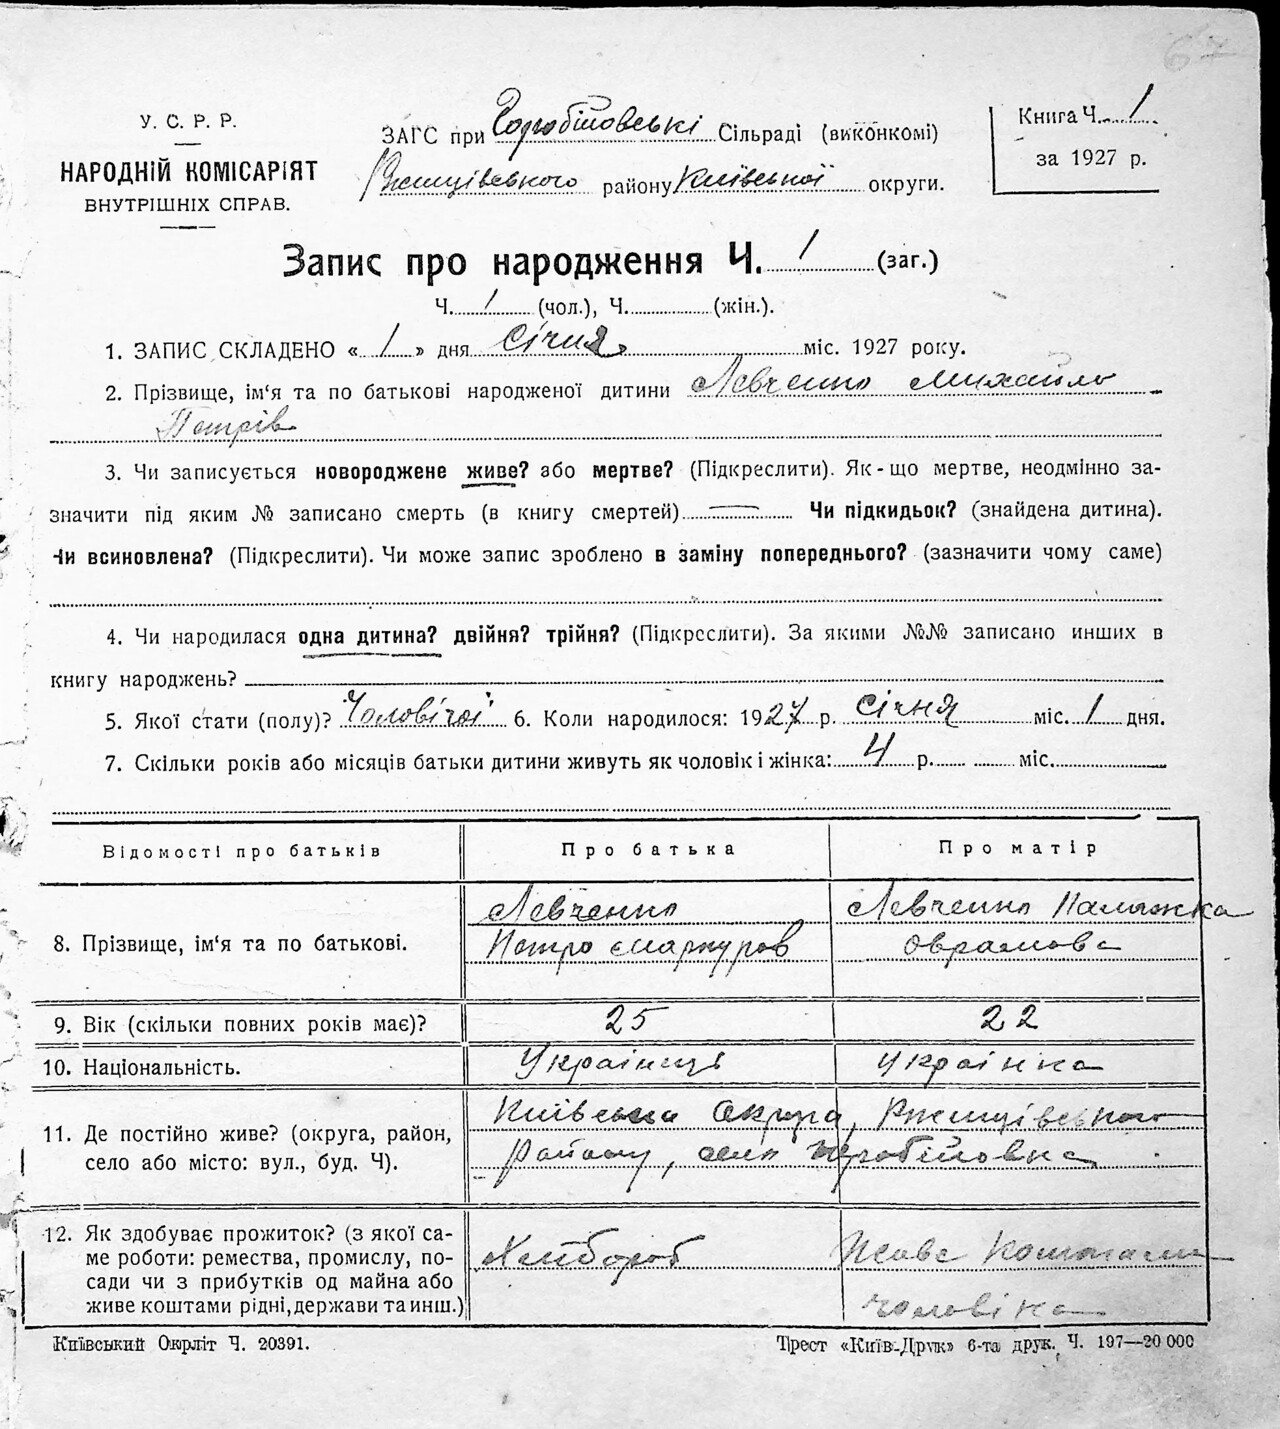 67
У. С. Р. Р.
НАРОДНІЙ КОМІСАРІЯТ
ВНУТРІШНІХ СПРАВ.
ЗАГС при Горобіївські Сільраді (виконкомі)
Ржищівського району Київської округи.
Книга Ч. 1
за 1927 р.
Запис про народження Ч. 1 (заг.)
Ч. 1 (чол.), Ч. (жін.).
1. ЗАПИС СКЛАДЕНО « 1 » дня Січня міс. 1927 року.
2. Прізвище, ім'я та по батькові народженої дитини Левченко Михайло
Петрів
3. Чи записується новороджене живе? або мертве? (Підкреслити). Як-що мертве, неодмінно за-
значити під яким № записано смерть (в книгу смертей) — Чи підкидьок? (знайдена дитина).
Чи всиновлена? (Підкреслити). Чи може запис зроблено в заміну попереднього? (зазначити чому саме)
4. Чи народилася одна дитина? двійня? трійня? (Підкреслити). За якими №№ записано инших в
книгу народжень?
5. Якої стати (полу)? Чоловічої 6. Коли народилося: 1927 р. Січня міс. 1 дня.
7. Скільки років або місяців батьки дитини живуть як чоловік і жінка: 4 р. міс.
Відомості про батьків Про батька Про матір
8. Прізвище, ім'я та по батькові. Левченко Левченко Палажка
Петро Мартуров Оврамова
9. Вік (скільки повних років має)? 25 22
10. Національність. Українець Українка
11. Де постійно живе? (округа, район,
село або місто: вул., буд. Ч).
Київська Округа, Ржищівського
Району, село Горобіївка
12. Як здобуває прожиток? (з якої са-
ме роботи: ремества, промислу, по-
сади чи з прибутків од майна або
живе коштами рідні, держави та инш.)
Хлібороб
Живе Коштами
чоловіка
Київський Окрліт Ч. 20391.
Трест «Київ-Друк» 6-та друк. Ч. 197—20 000